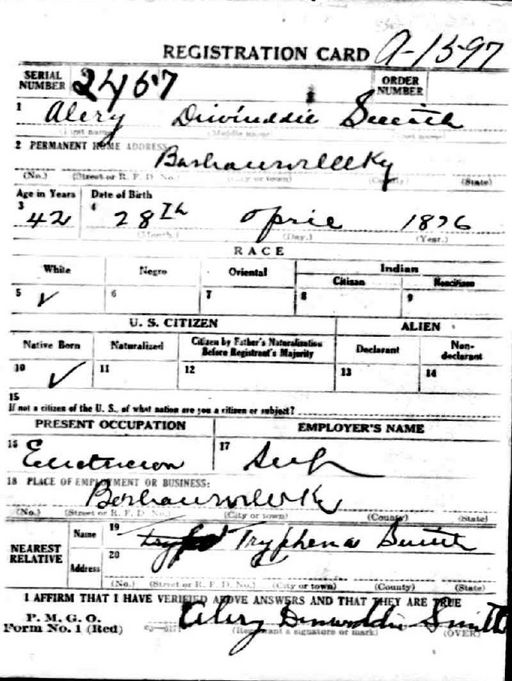 REGISTRATION CARD A-1597
SERIAL NUMBER 2467 ORDER NUMBER
1 Alery Dinwiddie Smith
(First name) (Middle name) (Last name)
2 PERMANENT HOME ADDRESS: Ky
(No.) (Street or R. F. D. No.) (City or town) (County) (State)
Age in Years Date of Birth
3 42 4 28th April 1876
(Month.) (Day.) (Year.)
RACE
White Negro Oriental Indian
Citizen Noncitizen
5 ✓ 6 7 8 9
U. S. CITIZEN ALIEN
Native Born Naturalized Citizen by Father's Naturalization Before Registrant's Majority Declarant Non-declarant
10 ✓ 11 12 13 14
15
If not a citizen of the U. S., of what nation are you a citizen or subject?
PRESENT OCCUPATION EMPLOYER'S NAME
16 17 Self
18 PLACE OF EMPLOYMENT OR BUSINESS:
Ky
(No.) (Street or R. F. D. No.) (City or town) (County) (State)
NEAREST RELATIVE Name 19 Tryphena Smith
Address 20
(No.) (Street or R. F. D. No.) (City or town) (County) (State)
I AFFIRM THAT I HAVE VERIFIED ABOVE ANSWERS AND THAT THEY ARE TRUE
P. M. G. O.
Form No. 1 (Red) Alery Dinwiddie Smith
(Registrant's signature or mark) (OVER)